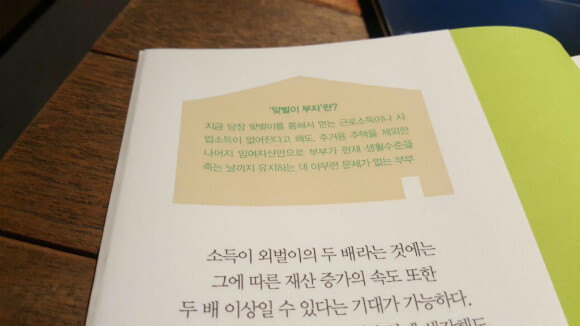 '맞벌이 부자'란?
지금 당장 맞벌이를 통해서 얻는 근로소득이나 사
업소득이 없어진다고 해도, 주거용 주택을 제외한
나머지 잉여자산만으로 부부가 현재 생활수준을
죽는 날까지 유지하는 데 아무런 문제가 없는 부부
소득이 외벌이의 두 배라는 것에는
그에 따른 재산 증가의 속도 또한
두 배 이상일 수 있다는 기대가 가능하다.
생각해도